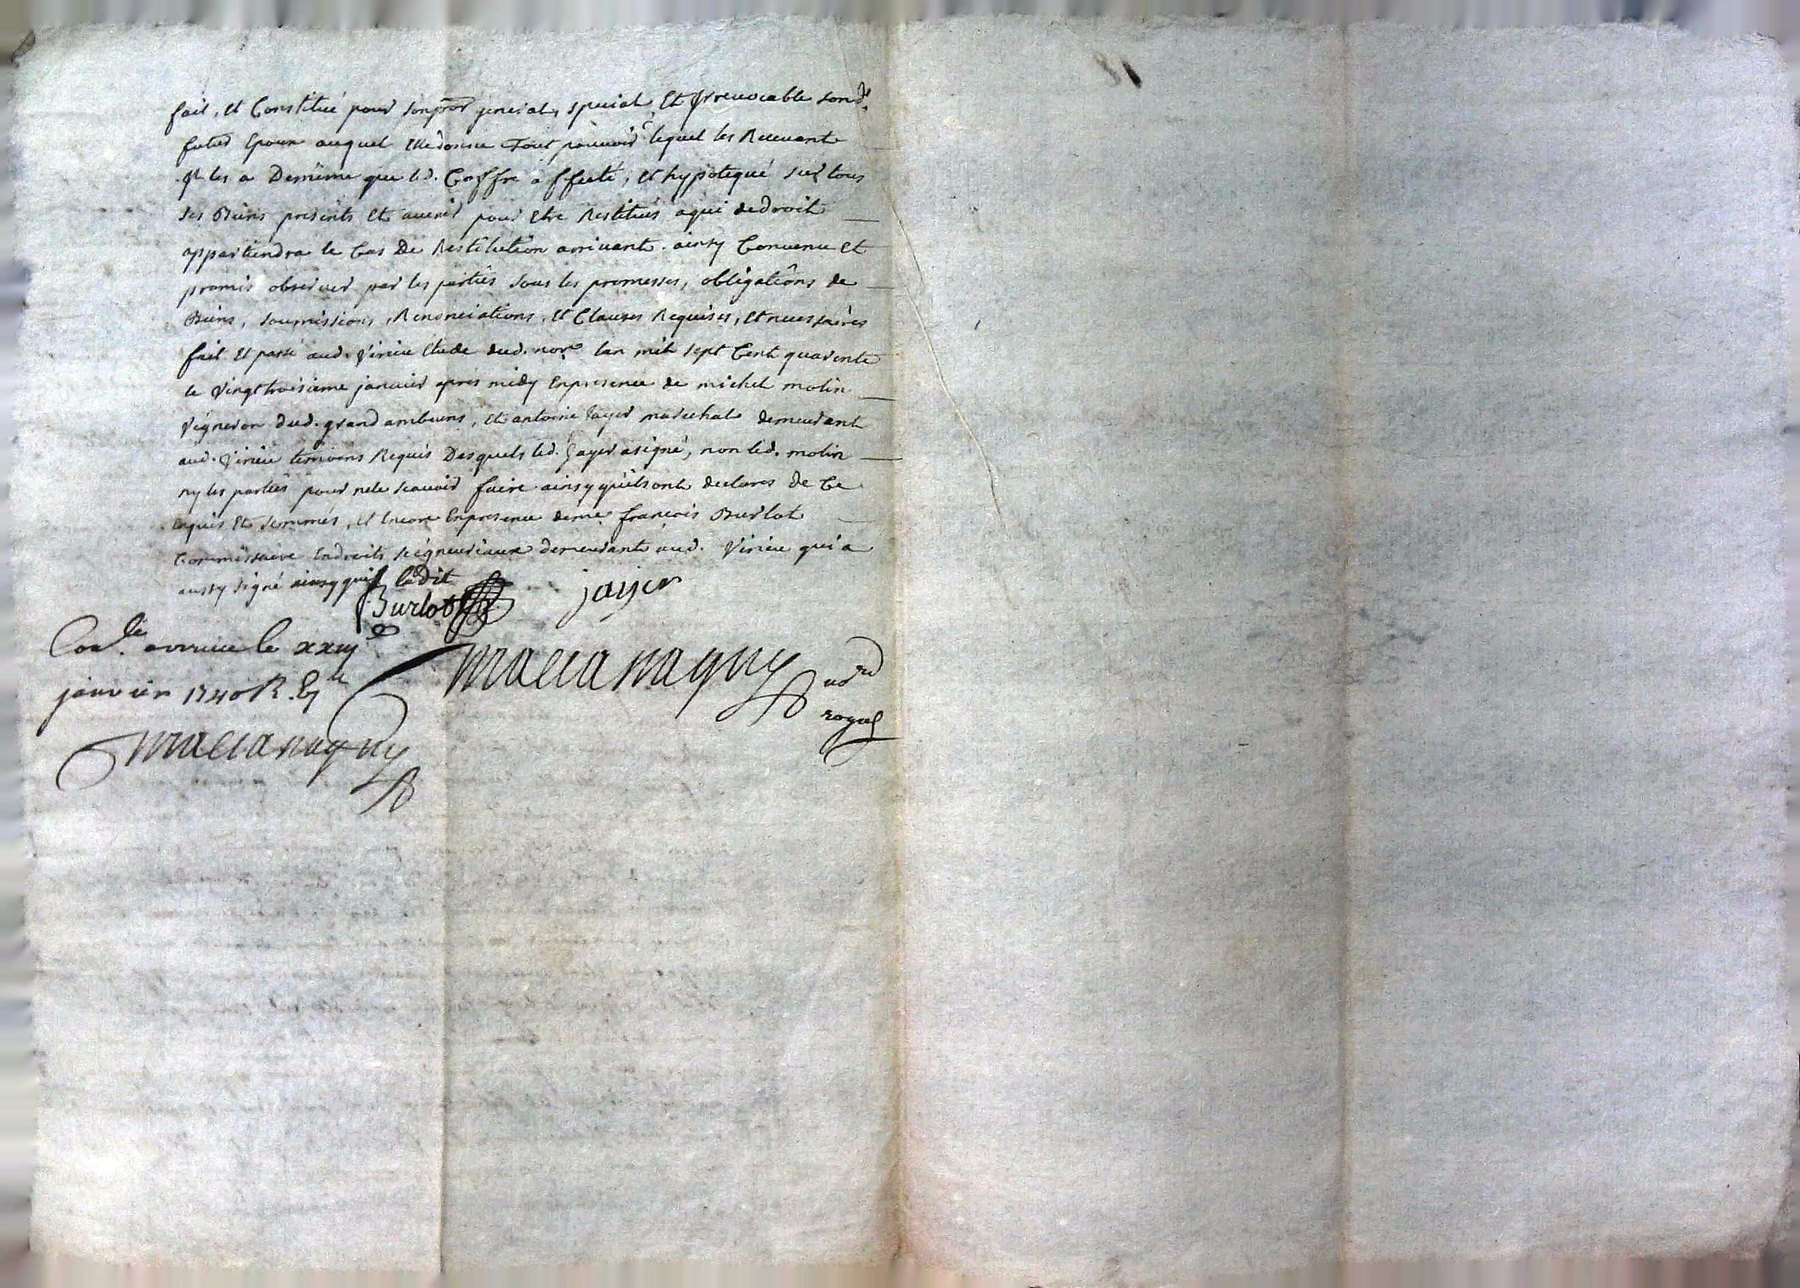 fait, et Constitué pour son pror general, special, et irrevocable sond.
futur Epoux auquel elle donne Tout pouvoir lequel les Recevant
et les a Demême que led. Coffre affecté, et hypotequé sur tous
ses Biens presents et avenir pour etre Restitués aqui dedroit
appartiendra le Cas De Restitution arrivant. ainsy Convenu et
promis observer par les parties sous les promesses, obligatîons de
Biens, soumissions, Renonciations, et Clauses Requises, et necessaires
fait et passé aud. Virieu Etude dud. nore. lan mil sept Cent quarente
le vingttroisieme janvier apres midy Enpresence de michel molin
vigneron dud. grand ambuens, et antoine jayer marechal demeurant
aud. Virieu temoins Requis Desquels led. jayer asigné, non led. molin
ny les parties pour nele scavoir faire ainsy quilsont declarés de Ce
enquis et sommés, et encore Enpresence deme. françois Burlot
Commissaire Endroits seigneuriaux demeurant aud. Virieu qui a
aussy signé ledit
Burlot jayer
Con.le avirieu le xxiij
janvier 1740 R.